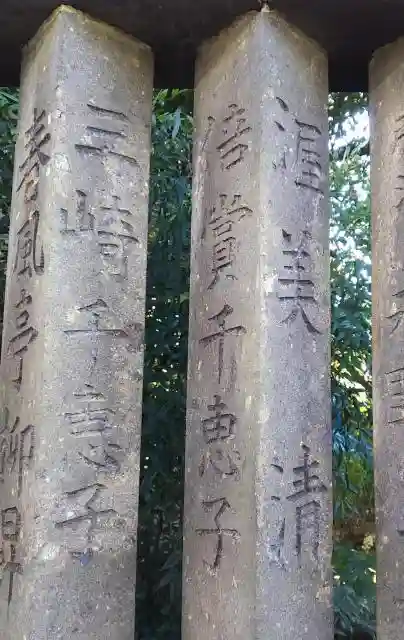 渥美清
倍賞千恵子
三崎千恵子
春風亭柳昇